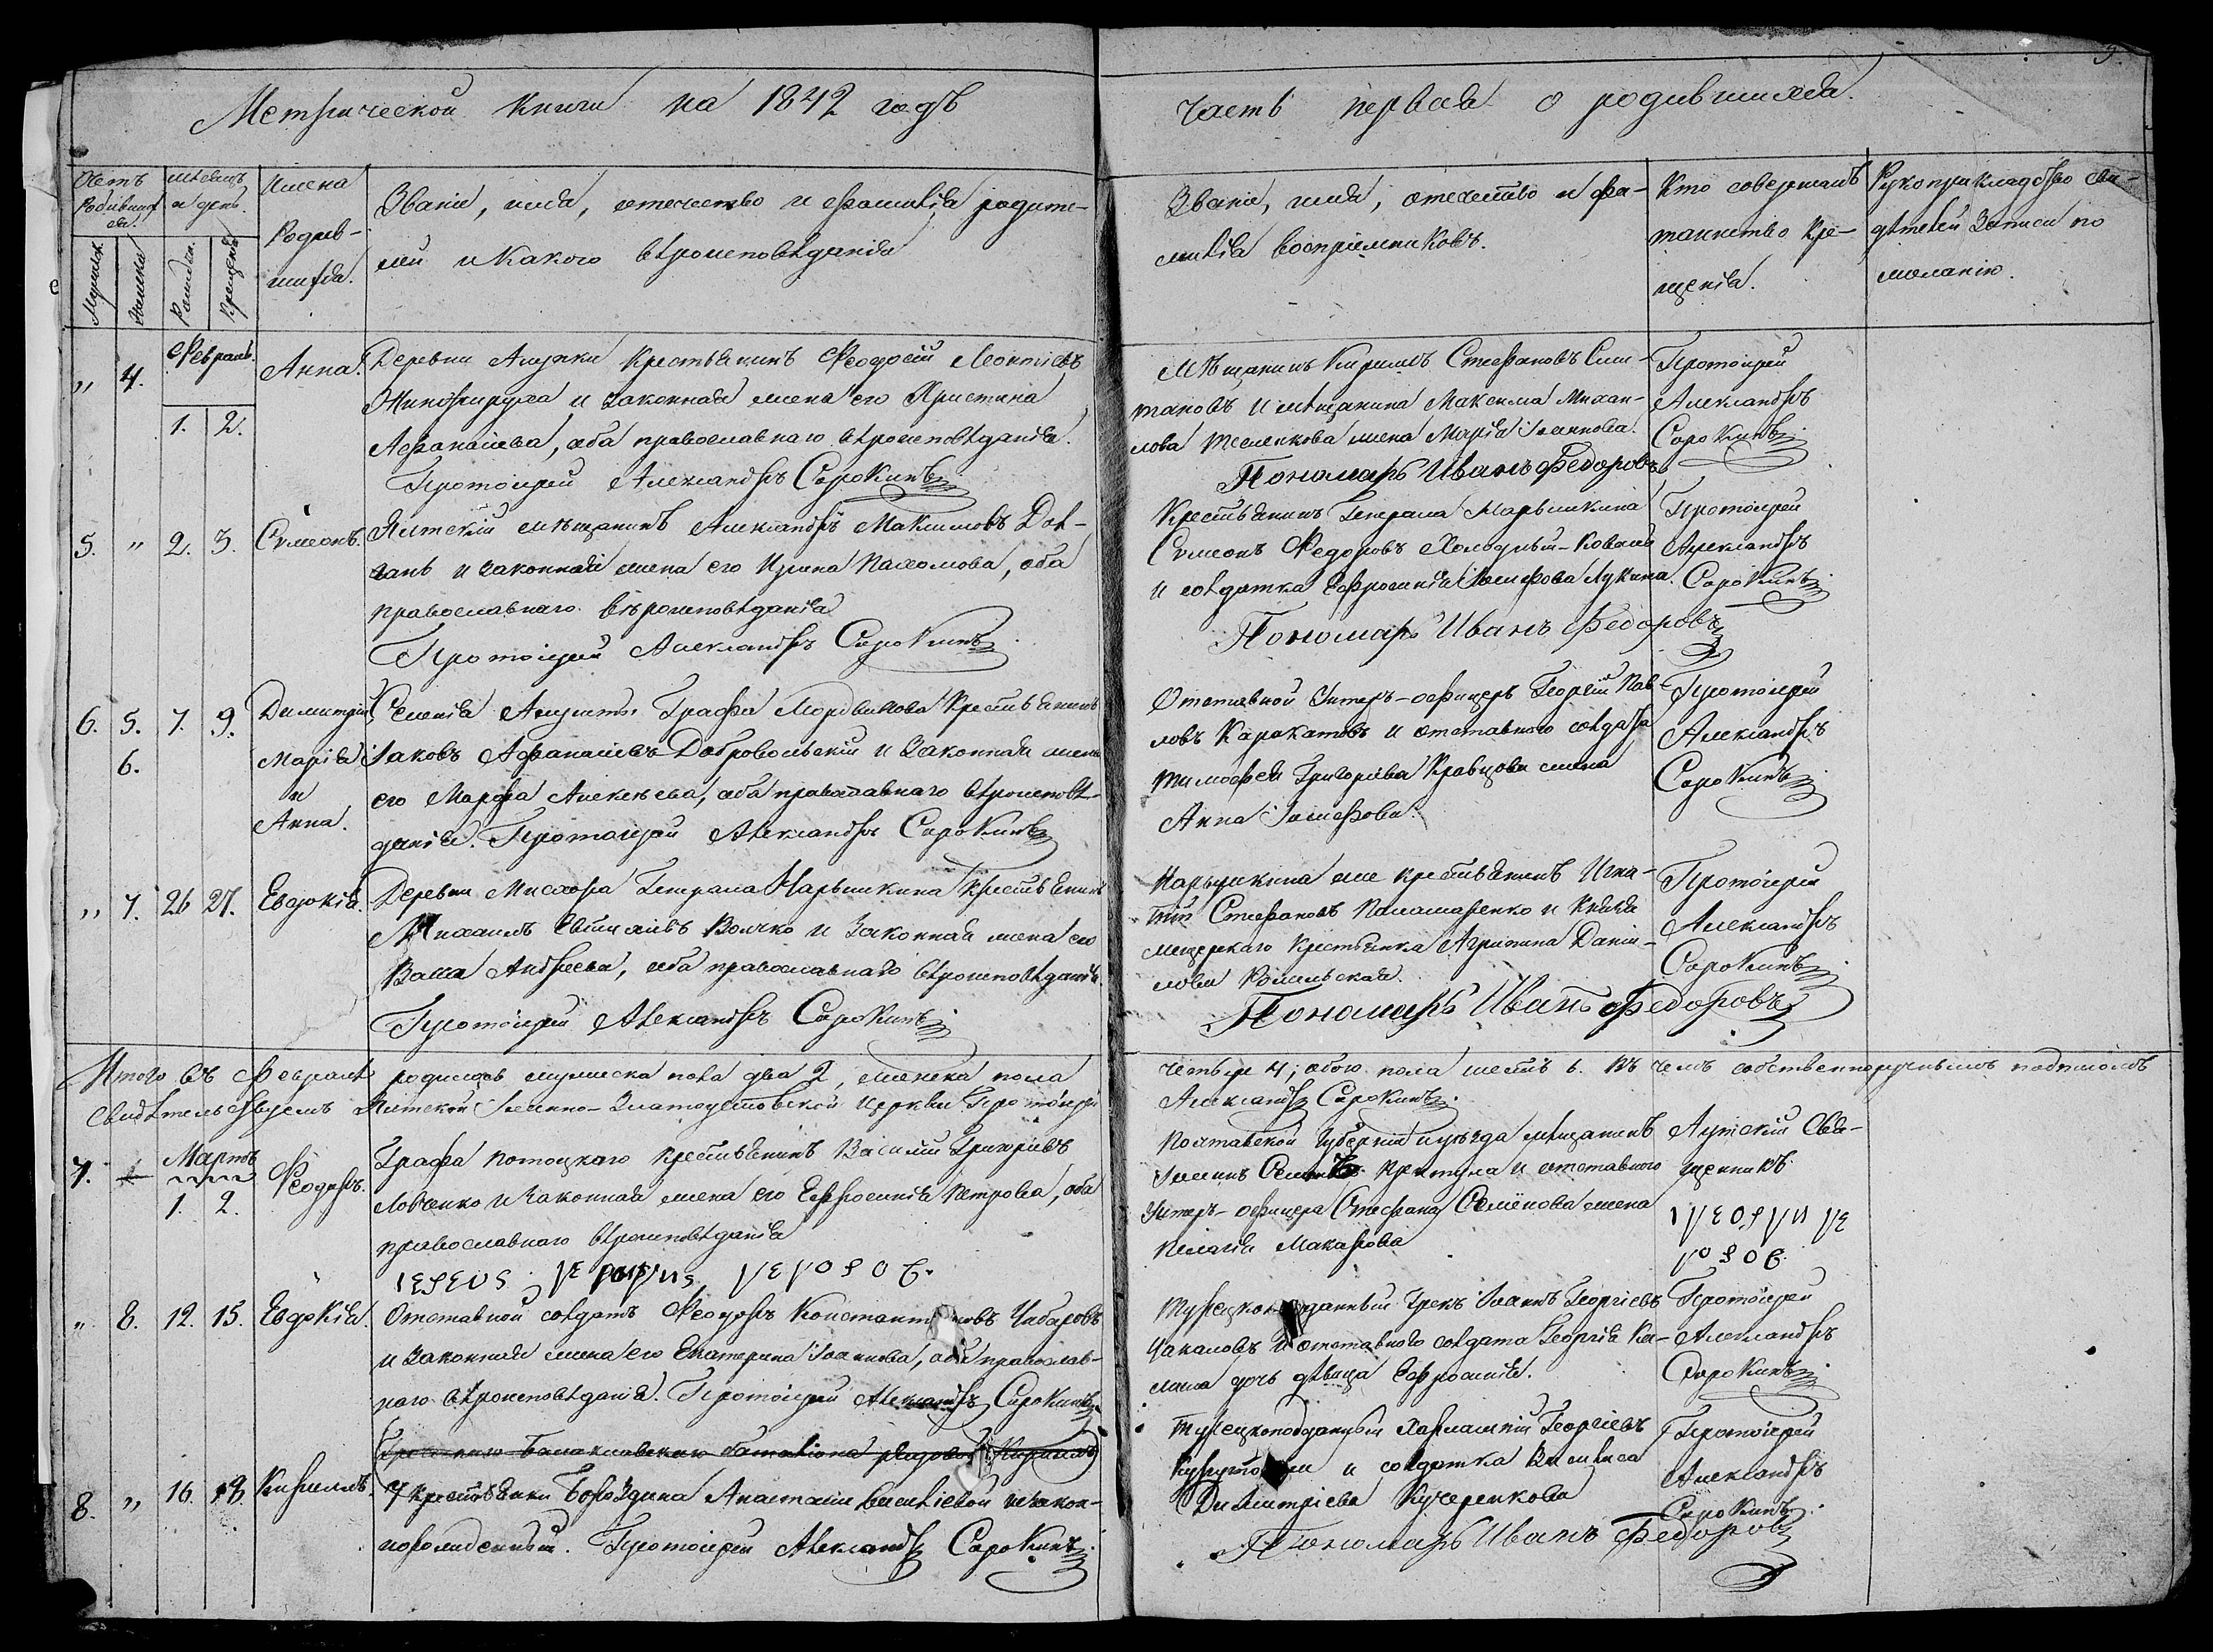 Метрической книги на 1842 годъ
часть первая о родившихся.
Счетъ родившихся.
мѣсяцъ и день.
Имена Родив-
шихся.
Званіе, имя, отечество и фамилія родите-
лей и какого вѣроисповѣданія
Званіе, имя, отечество и фа-
милія воспріемниковъ.
Кто совершалъ
таинство кре-
щенія.
Рукоприкладство сви-
дѣтелей записи по
желанію.
Рожденія.
Крещенія.
Февраль.
" 4. 1. 2. Анна.
Деревни Алупки крестьянинъ Феодосій Леонтіевъ
и законная жена его Христина
Афанасіева, оба православнаго вѣроисповѣданія.
Протоіерей Александръ Сорокинъ
Мѣщанинъ Кириллъ Стефановъ
и мѣщанина Максима Михаи-
лова жена Марія Іоаннова.
Пономарь Иванъ Федоровъ
Протоіерей
Александръ
Сорокинъ
5. " 2. 3. Сѵмеонъ.
Ялтскій мѣщанинъ Александръ Максимовъ
и законная жена его Ирина Пахомова, оба
православнаго вѣроисповѣданія
Протоіерей Александръ Сорокинъ
Крестьянинъ Генерала Нарышкина
Сѵмеонъ Федоровъ Холодный-Коваль
и солдатка Ефросинія Іосифова Лукина.
Пономарь Иванъ Федоровъ
Протоіерей
Александръ
Сорокинъ
6. 5. 7. 9. Димитрій
6. Марія
и
Анна.
Графа Мордвинова крестьянинъ
Іаковъ Афанасіевъ Добровольскій и законная жена
его Марфа Алексѣева, оба православнаго вѣроисповѣ-
данія. Протоіерей Александръ Сорокинъ
Отставной Унтеръ-офицеръ Георгій Пав-
ловъ Каракатовъ и отставного солдата
Тимофея Григоріева Кравцова жена
Анна Іосифова.
Протоіерей
Александръ
Сорокинъ
" 7. 26 27. Евдокія.
Деревни Мисхора Генерала Нарышкина крестьянинъ
Михаилъ Волчко и законная жена его
Васса Андреева, оба православнаго вѣроисповѣданія.
Протоіерей Александръ Сорокинъ
Нарышкина же крестьянинъ Игна-
тій Стефановъ Паламаренко и Князя
Мещерскаго крестьянка Агрипина Даніи-
лова
Пономарь Иванъ Федоровъ
Протоіерей
Александръ
Сорокинъ
Итого въ Февралѣ родилось мужеска пола два 2, женска пола
четыре 4; обоего пола шесть 6. Въ чемъ собственноручнымъ подписомъ
свидѣтельствуемъ Ялтской Іоанно-Златоустовской церкви Протоіерей
Александръ Сорокинъ
Мартъ
7. 1. 2. Феодоръ.
Графа Потоцкаго крестьянинъ Василій Григоріевъ
Ловченко и законная жена его Ефросинія Петрова, оба
православнаго вѣроисповѣданія
Полтавской Губерніи и уѣзда мѣщанинъ
Іоаннъ Притула и отставного
Унтеръ-офицера Стефана Семёнова жена
Пелагія Макарова
Аутскій Свя-
щенникъ
" 8. 12. 15. Евдокія.
Отставной солдатъ Феодоръ Константиновъ Чабаровъ
и законная жена его Екатерина Іоаннова, оба православ-
наго вѣроисповѣданія. Протоіерей Александръ Сорокинъ
Турецкоподданный Грекъ Іоаннъ Георгіевъ
Чакаловъ и отставного солдата Георгія
дочь дѣвица Ефросинія.
Протоіерей
Александръ
Сорокинъ
8. " 16. 18. Кириллъ.
Греческаго Балаклавскаго баталіона рядовой Кириллъ
У крестьянки Бороздина Анастасіи Василіевой незакон-
норожденный. Протоіерей Александръ Сорокинъ
Турецкоподданный Харлампій Георгіевъ
и солдатка Василиса
Димитріева Кучеренкова
Пономарь Иванъ Федоровъ
Протоіерей
Александръ
Сорокинъ